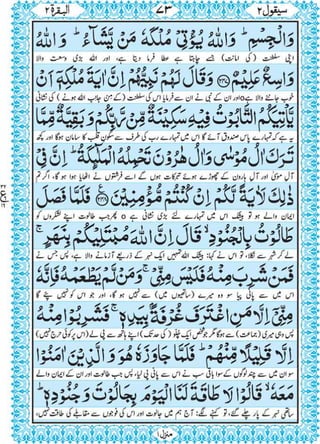 سيقول٢ ٧٣ البقرة٢
وَالْجِسْمِ ؕ وَاللّٰهُ يُؤْتِيْ مُلْكَهٗ مَنْ يَّشَآءُ ؕ وَاللّٰهُ
اپنی سلطنت (کی امانت) جسے چاہتا ہے عطا فرما دیتا ہے، اور اللہ بڑی وسعت والا
وَاسِعٌ عَلِيْمٌ ﴿۲۴۷﴾ وَقَالَ لَهُمْ نَبِيُّهُمْ اِنَّ اٰيَةَ مُلْكِهٖۤ اَنْ
خوب جاننے والا ہے o اور ان کے نبی نے ان سے فرمایا: اس کی سلطنت (کے من جانب اللہ ہونے) کی نشانی
يَّاْتِيَكُمُ التَّابُوْتُ فِيْهِ سَكِيْنَةٌ مِّنْ رَّبِّكُمْ وَبَقِيَّةٌ مِّمَّا
یہ ہے کہ تمہارے پاس صندوق آئے گا اس میں تمہارے رب کی طرف سے سکونِ قلب کا سامان ہوگا اور کچھ
تَرَكَ اٰلُ مُوْسٰى وَاٰلُ هٰرُوْنَ تَحْمِلُهُ الْمَلٰٓئِكَةُ ؕ اِنَّ فِيْ
آلِ موسیٰ اور آلِ ہارون کے چھوڑے ہوئے تبرکات ہوں گے اسے فرشتوں نے اٹھایا ہوا ہو گا، اگر تم
ذٰلِكَ لَاٰيَةً لَّكُمْ اِنْ كُنْتُمْ مُّؤْمِنِيْنَ ﴿۲۴۸﴾ فَلَمَّا فَصَلَ
ایمان والے ہو تو بیشک اس میں تمہارے لئے بڑی نشانی ہے o پھر جب طالوت اپنے لشکروں کو
طَالُوْتُ بِالْجُنُوْدِ ۙ قَالَ اِنَّ اللّٰهَ مُبْتَلِيْكُمْ بِنَهَرٍ ۚ
لے کر شہر سے نکلا، تو اس نے کہا: بیشک اللہ تمہیں ایک نہر کے ذریعے آزمانے والا ہے، پس جس نے
فَمَنْ شَرِبَ مِنْهُ فَلَيْسَ مِنِّيْ ۚ وَمَنْ لَّمْ يَطْعَمْهُ فَاِنَّهٗ
اس میں سے پانی پیا سو وہ میرے (ساتھیوں میں) سے نہیں ہو گا، اور جو اس کو نہیں پئے گا
مِنِّيْۤ اِلَّا مَنِ اغْتَرَفَ غُرْفَةًۢ بِيَدِهٖ ۚ فَشَرِبُوْا مِنْهُ
پس وہی میری (جماعت) سے ہوگا مگر جو شخص ایک چلّو (کی حد تک) اپنے ہاتھ سے پی لے (اس پر کوئی حرج نہیں)
اِلَّا قَلِيْلًا مِّنْهُمْ ؕ فَلَمَّا جَاوَزَهٗ هُوَ وَالَّذِيْنَ اٰمَنُوْا
سو ان میں سے چند لوگوں کے سوا باقی سب نے اس سے پانی پی لیا، پس جب طالوت اور ان کے ایمان والے
مَعَهٗ ۙ قَالُوْا لَا طَاقَةَ لَنَا الْيَوْمَ بِجَالُوْتَ وَجُنُوْدِهٖ ؕ
ساتھی نہر کے پار چلے گئے، تو کہنے لگے: آج ہم میں جالوت اور اس کی فوجوں سے مقابلے کی طاقت نہیں،
منزل١